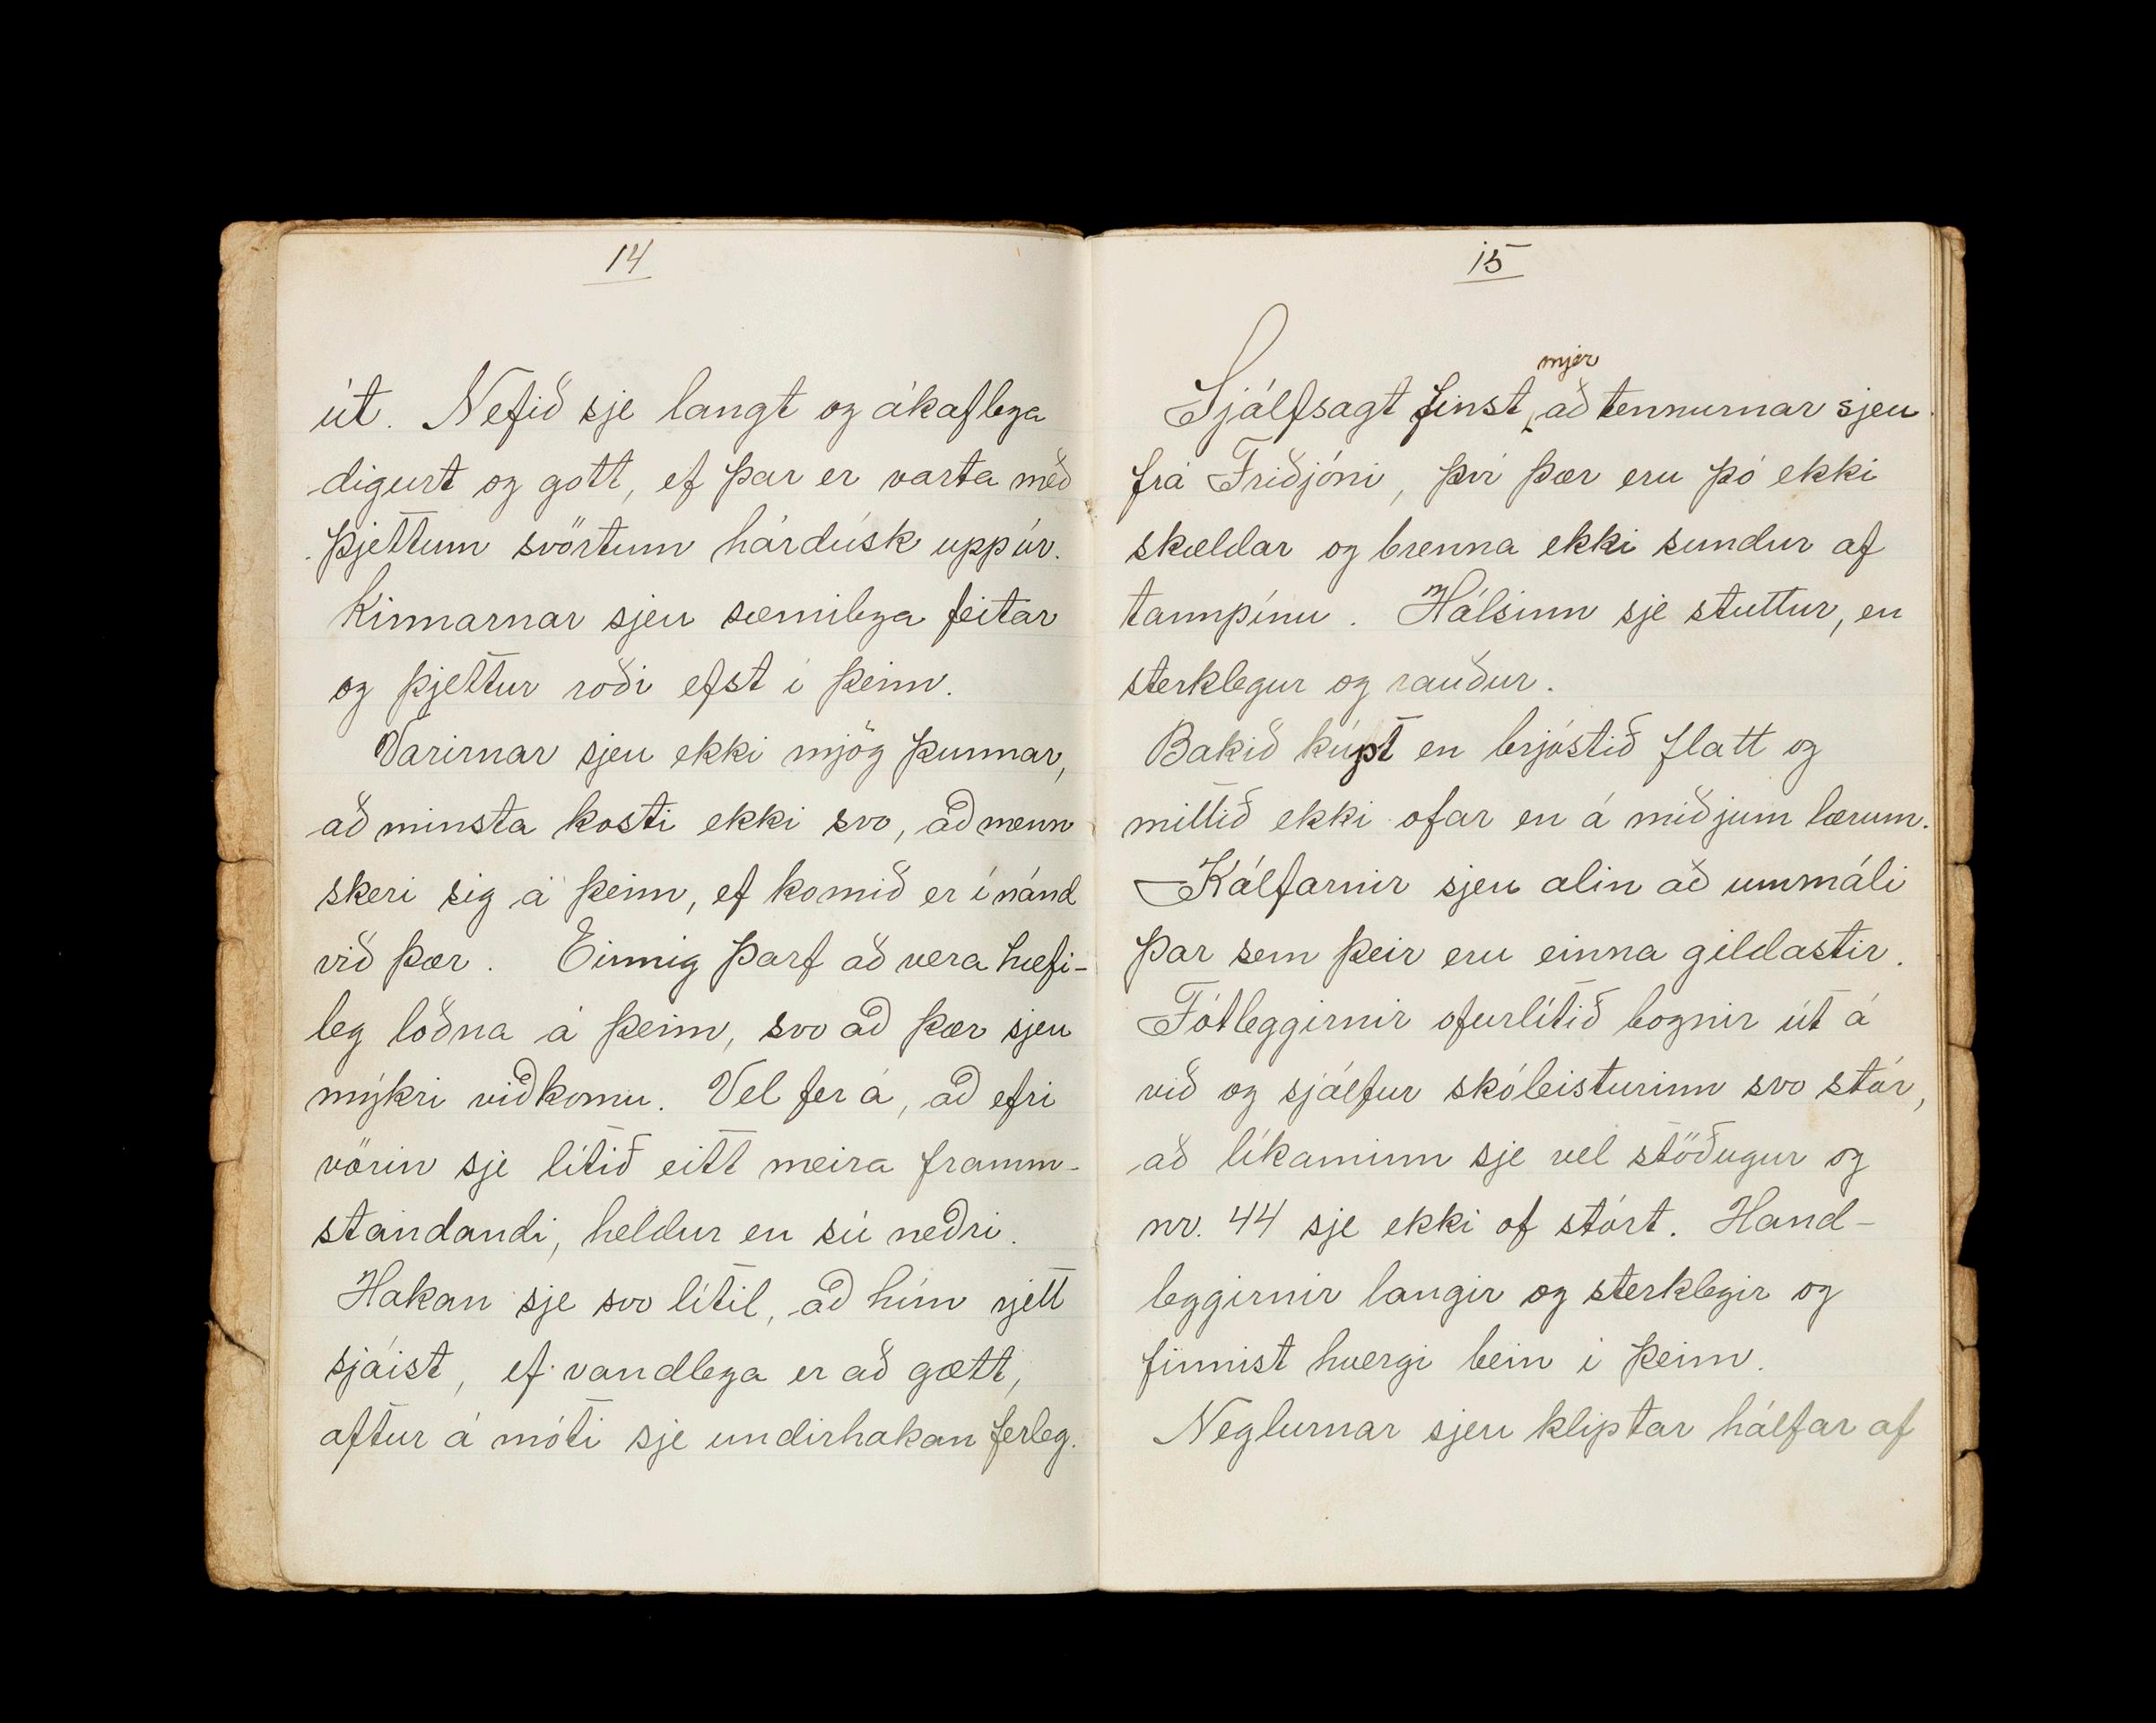 14
út. Nefið sje langt og ákaflega
digurt og gott, ef þar er varta með
þjettum svörtum hárdúsk uppúr.
Kinnarnar sjeu sæmilega feitar
og þjettur roði efst í þeim.
Varirnar sjeu ekki mjög þunnar,
að minsta kosti ekki svo, að menn
skeri sig á þeim, ef komið er í nánd
við þær. Einnig þarf að vera hæfi-
leg loðna á þeim, svo að þær sjeu
mýkri viðkomu. Vel fer á, að efri
vörin sje lítið eitt meira framm-
standandi, heldur en sú neðri.
Hakan sje svo lítil, að hún rjett
sjáist, ef vandlega er að gætt,
aftur á móti sje undirhakan ferleg.
15
Sjálfsagt finst mjer að tennurnar sjeu
frá Friðjóni, því þær eru þó ekki
skældar og brenna ekki sundur af
tannpínu. Hálsinn sje stuttur, en
sterklegur og rauður.
Bakið kúpt en brjóstið flatt og
mittið ekki ofar en á miðjum lærum.
Kálfarnir sjeu alin að ummáli
þar sem þeir eru einna gildastir.
Fótleggirnir ofurlítið bognir út á
við og sjálfur skóleisturinn svo stór,
að líkaminn sje vel stöðugur og
nr. 44 sje ekki of stórt. Hand-
leggirnir langir og sterklegir og
finnist hvergi bein í þeim.
Neglurnar sjeu kliptar hálfar af